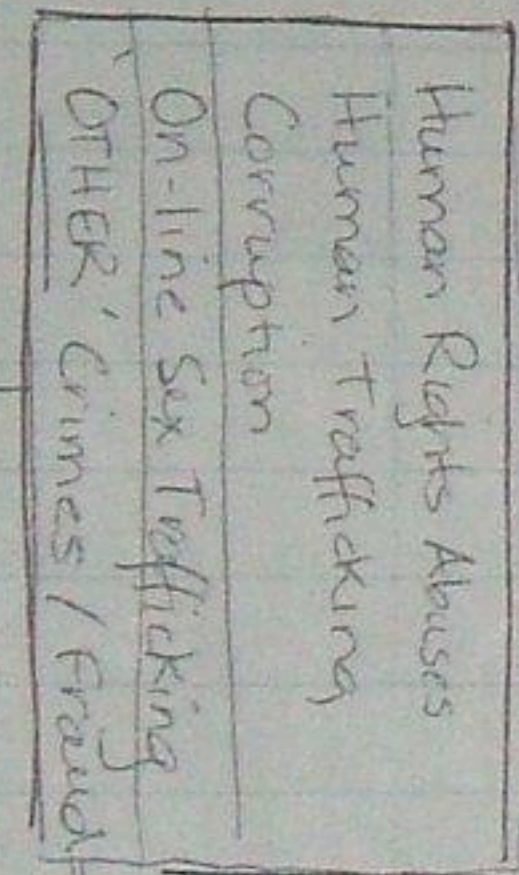 Human Rights Abuses
Human Trafficking
Corruption
On-line Sex Trafficking
'OTHER' Crimes / Fraud